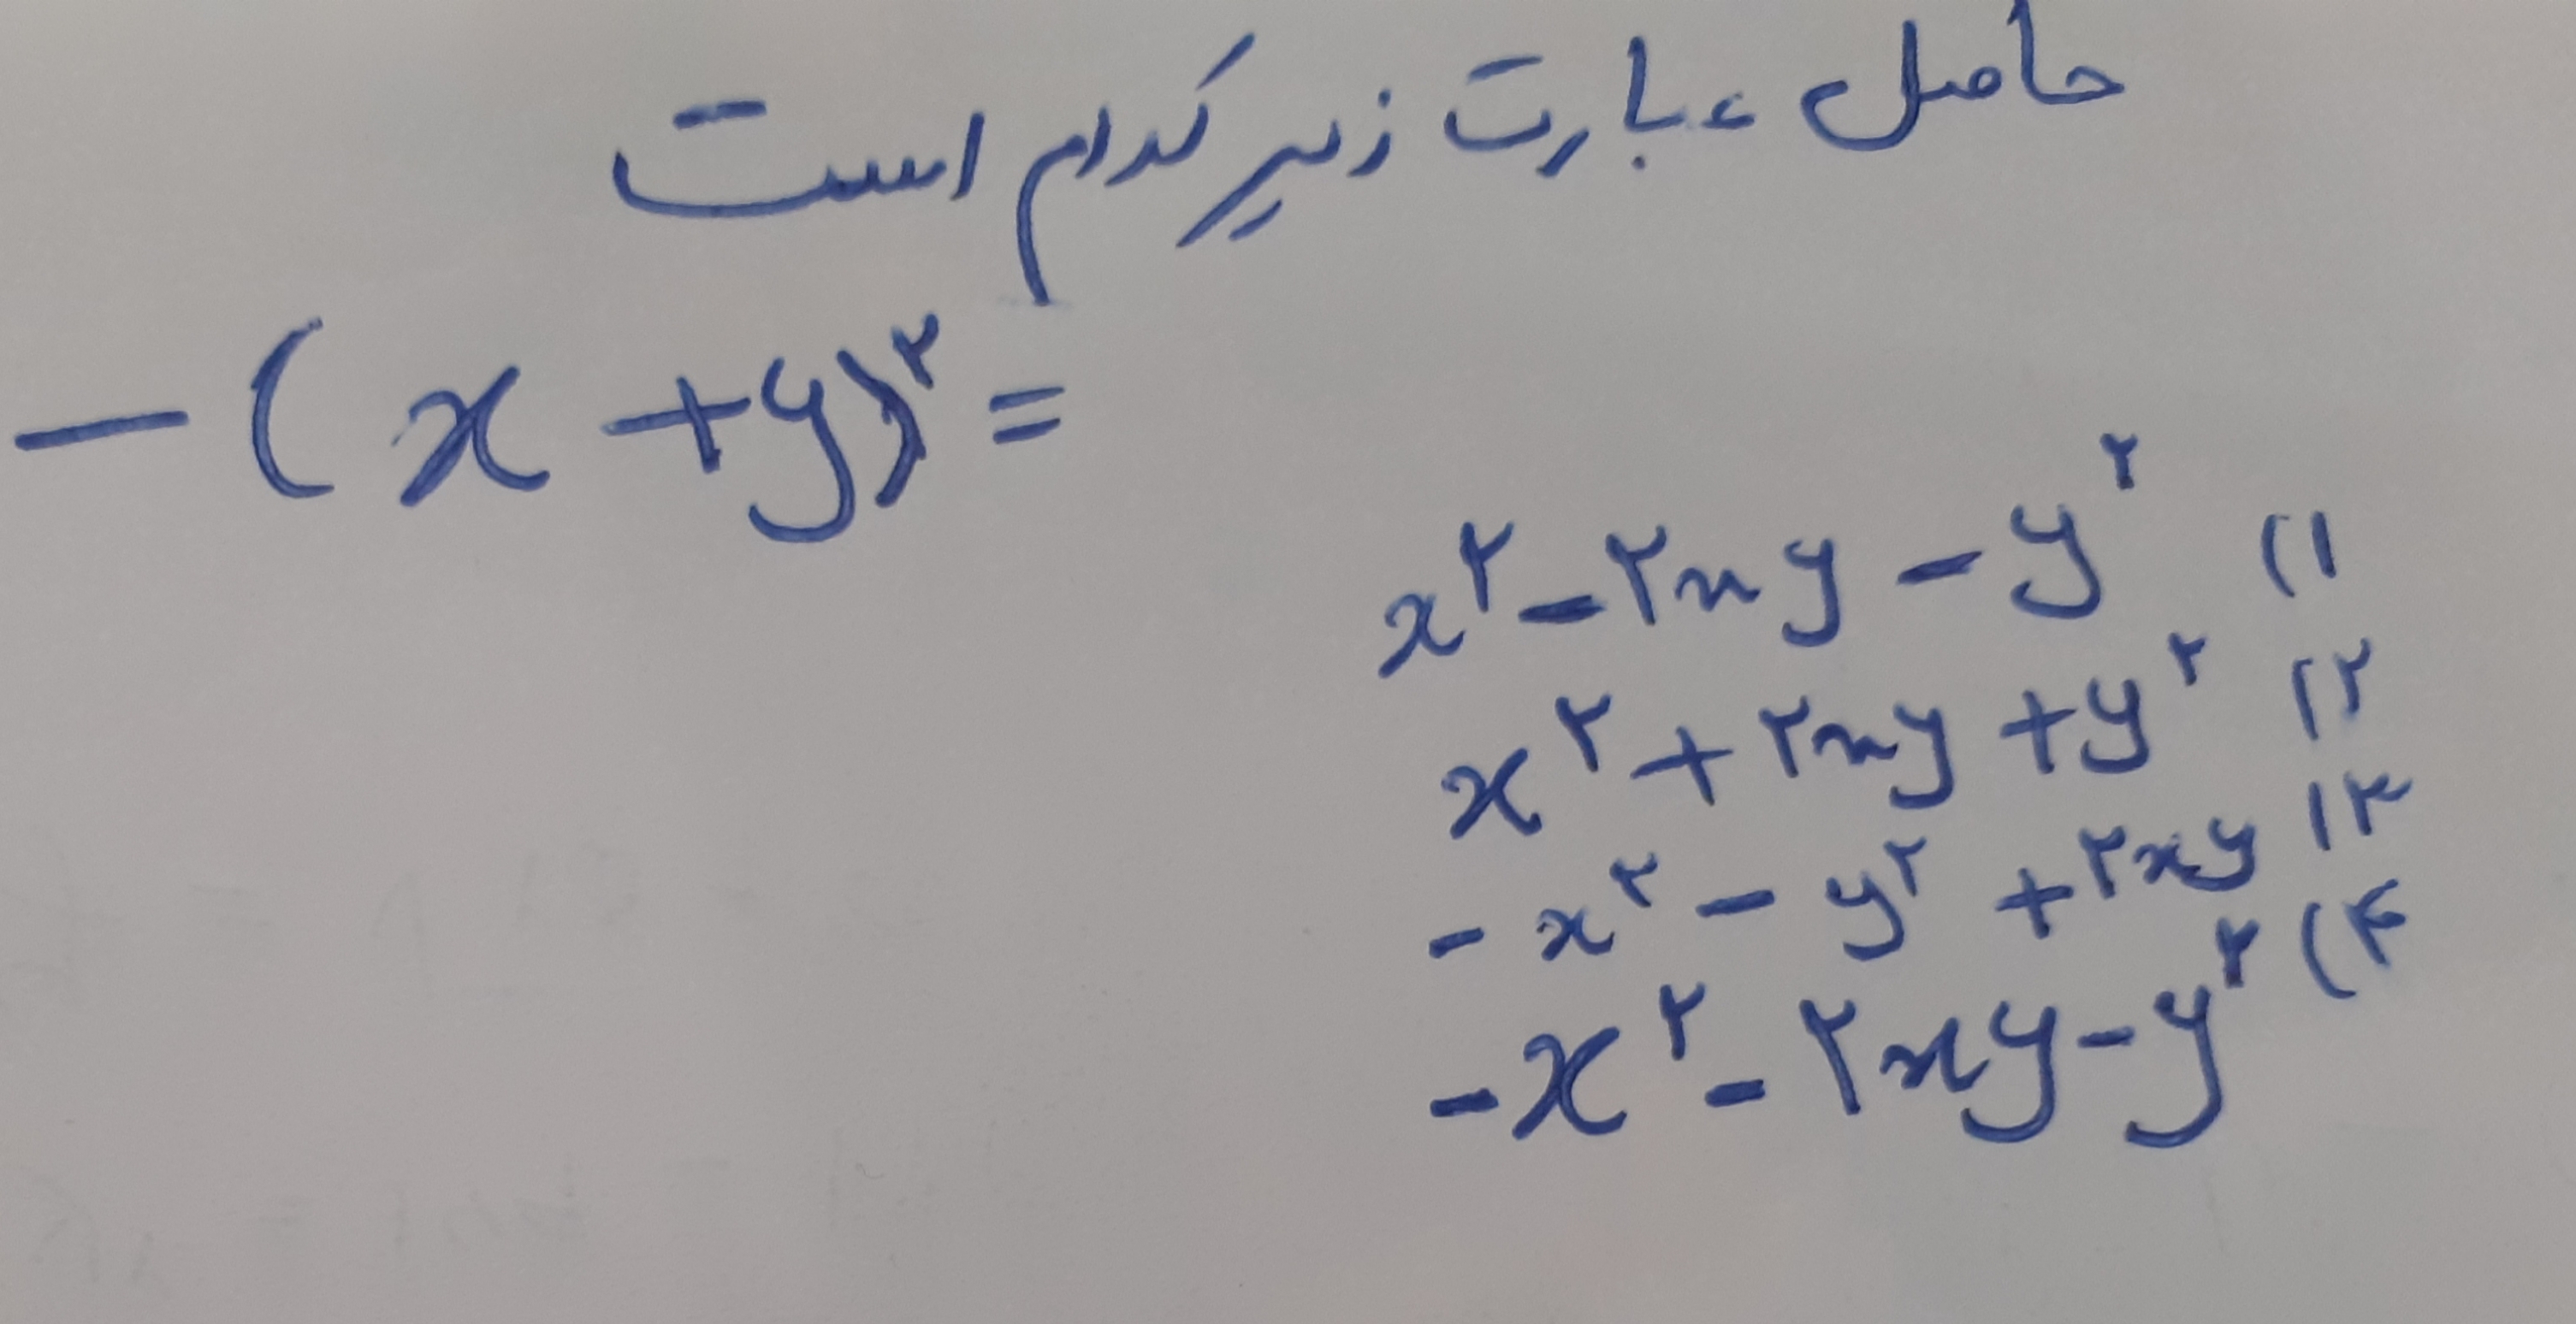 حاصل عبارت زیر کدام است
-(x+y)^۲ =
x^۲ - ۲xy - y^۲ (۱
x^۲ + ۲xy + y^۲ (۲
-x^۲ - y^۲ + ۲xy (۳
-x^۲ - ۲xy - y^۲ (۴